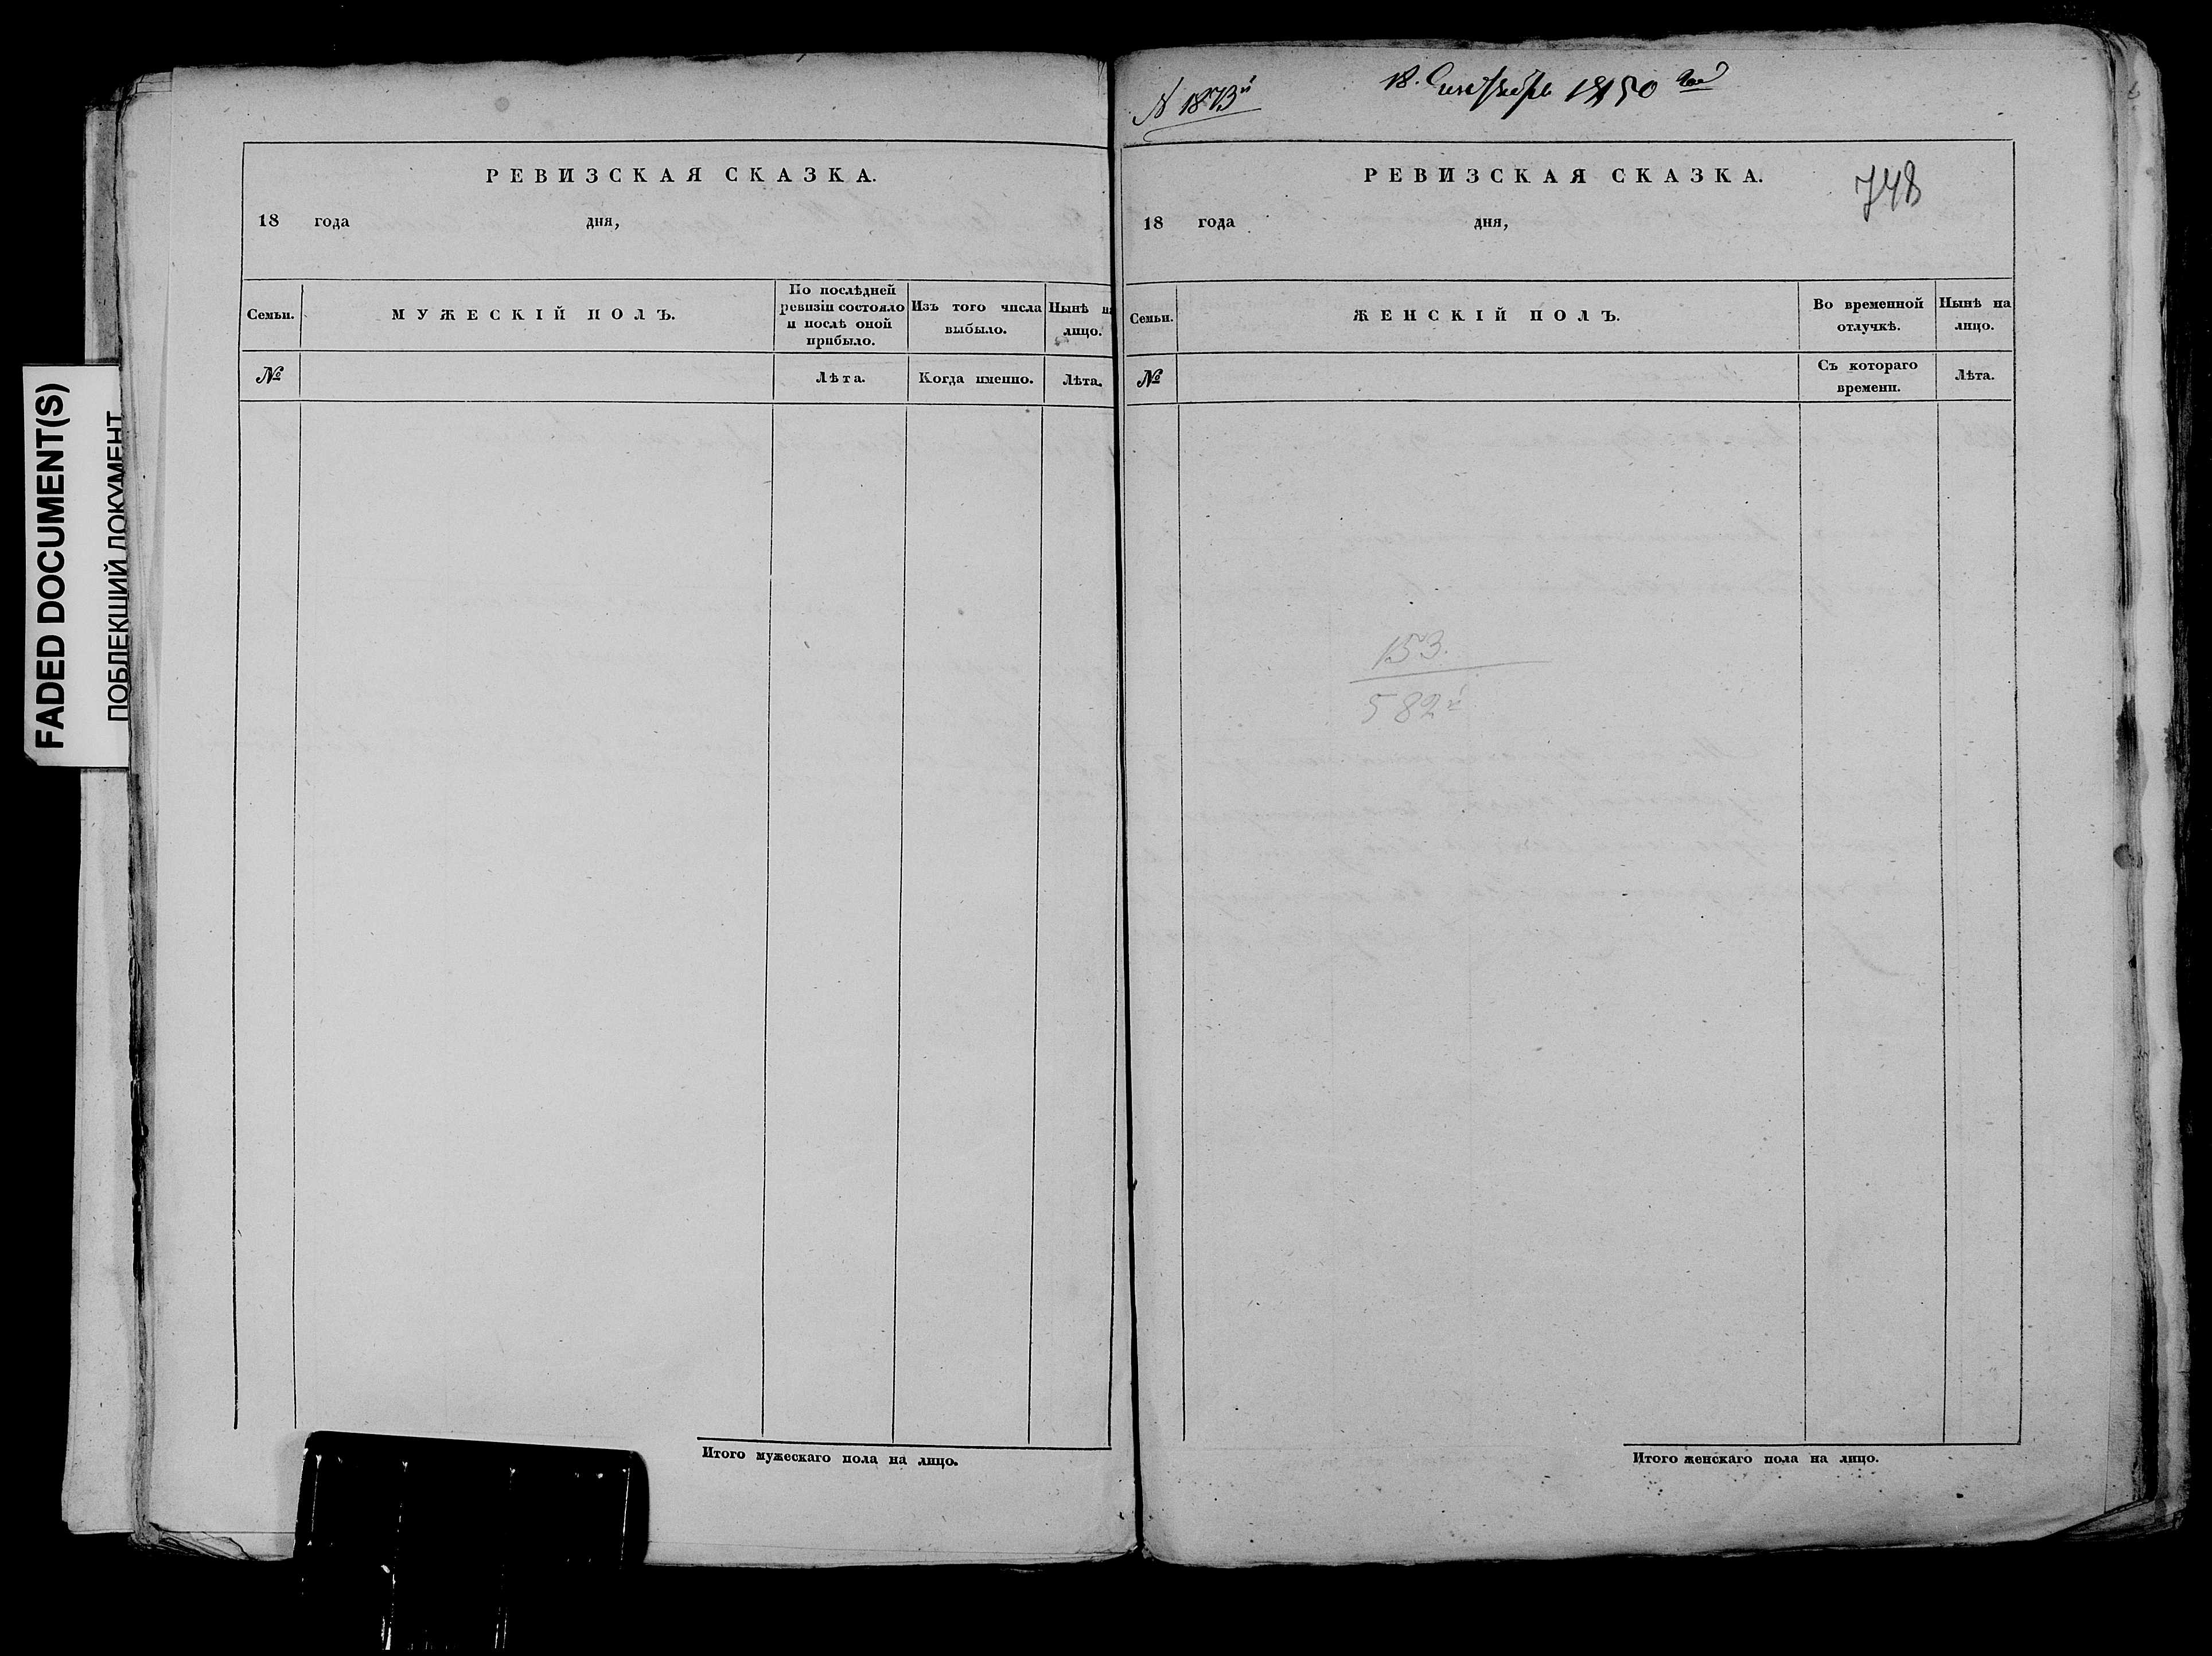 FADED DOCUMENT(S)
ПОБЛЕКШИЙ ДОКУМЕНТ
РЕВИЗСКАЯ СКАЗКА.
18 года дня,
Семьи. МУЖЕСКІЙ ПОЛЪ. По послѣдней ревизіи состояло и послѣ оной прибыло. Изъ того числа выбыло. Нынѣ на лицо.
№ Лѣта. Когда именно. Лѣта.
Итого мужескаго пола на лицо.
N 1873й
18. Сентября 1850 год
РЕВИЗСКАЯ СКАЗКА.
748
18 года дня,
Семьи. ЖЕНСКІЙ ПОЛЪ. Во временной отлучкѣ. Нынѣ на лицо.
№ Съ котораго времени. Лѣта.
153.
582й
Итого женскаго пола на лицо.